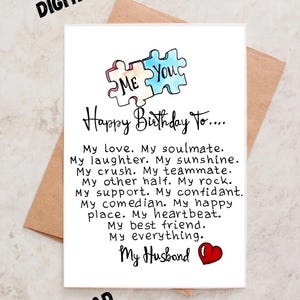 DIGIT
ME YOU
Happy Birthday To....
My love. My soulmate.
My laughter. My sunshine.
My crush. My teammate.
My other half. My rock.
My support. My confidant.
My comedian. My happy
place. My heartbeat.
My best friend.
My everything.
My Husband